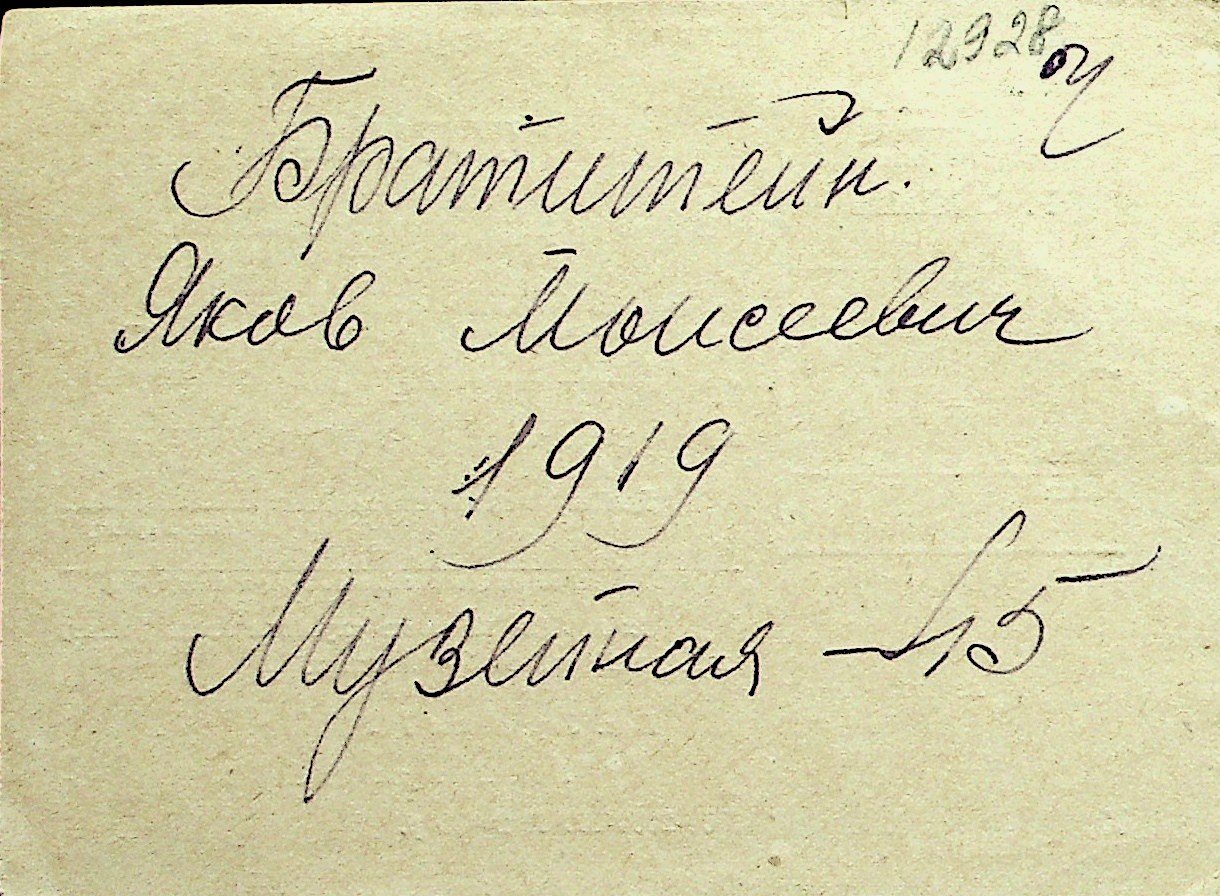 12928
Братштейн.
Яков Моисеевич
1919
Музейная - 45